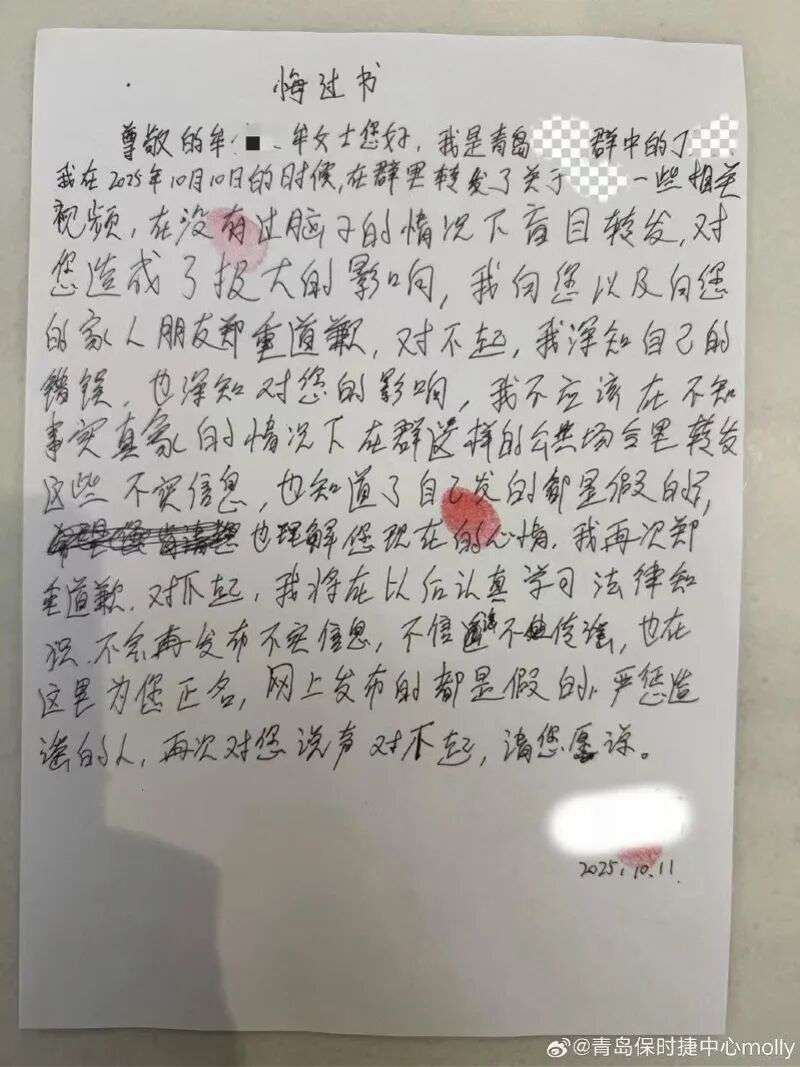 悔过书
尊敬的牟 牟女士您好，我是青岛 群中的丁
我在2025年10月10日的时候，在群里转发了关于 一些相关
视频，在没有过脑子的情况下盲目转发，对
您造成了极大的影响，我向您以及向您
的家人朋友郑重道歉，对不起，我深知自己的
错误，也深知对您的影响，我不应该在不知
事实真象的情况下在群这样的公共场合里转发
这些不实信息，也知道了自己发的都是假的，
也理解您现在的心情，我再次郑
重道歉，对不起，我将在以后认真学习法律知
识，不会再发布不实信息，不信 不 传谣，也在
这里为您正名，网上发布的都是假的，严惩造
谣的人，再次对您说声对不起，请您 谅。
2025.10.11
@青岛保时捷中心molly